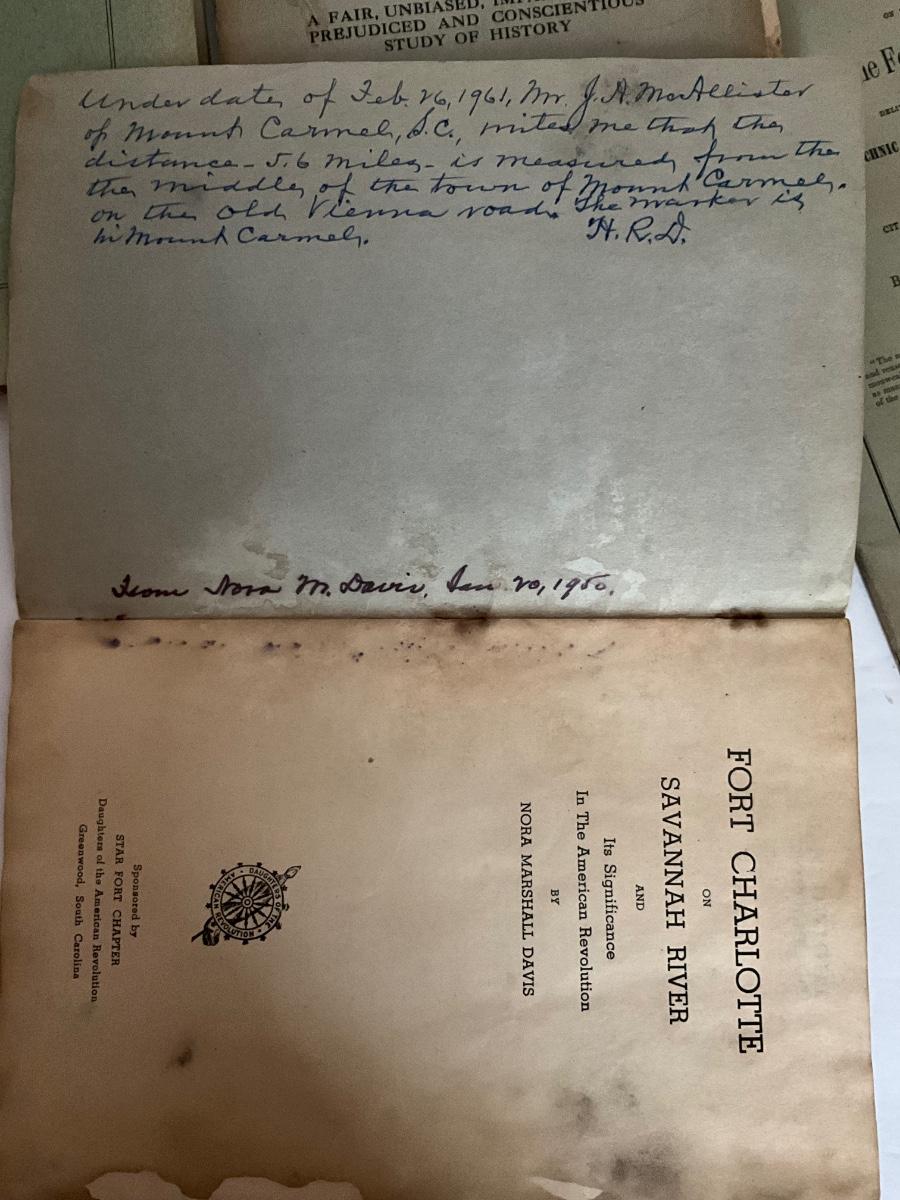 A FAIR, UNBIASED,
PREJUDICED AND CONSCIENTIOUS
STUDY OF HISTORY
Under date of Feb. 26, 1961, Mr. J. A. McAllister
of Mount Carmel, S.C., writes me that the
distance - 5.6 miles - is measured from the
the middle of the town of Mount Carmel.
on the Old Vienna road. The marker is
in Mount Carmel. H. R. D.
From Nora M. Davis, Jan 20, 1950.
FORT CHARLOTTE
ON
SAVANNAH RIVER
AND
Its Significance
In The American Revolution
BY
NORA MARSHALL DAVIS
DAUGHTERS OF THE
AMERICAN REVOLUTION
Sponsored by
STAR FORT CHAPTER
Daughters of the American Revolution
Greenwood, South Carolina
"The
of the